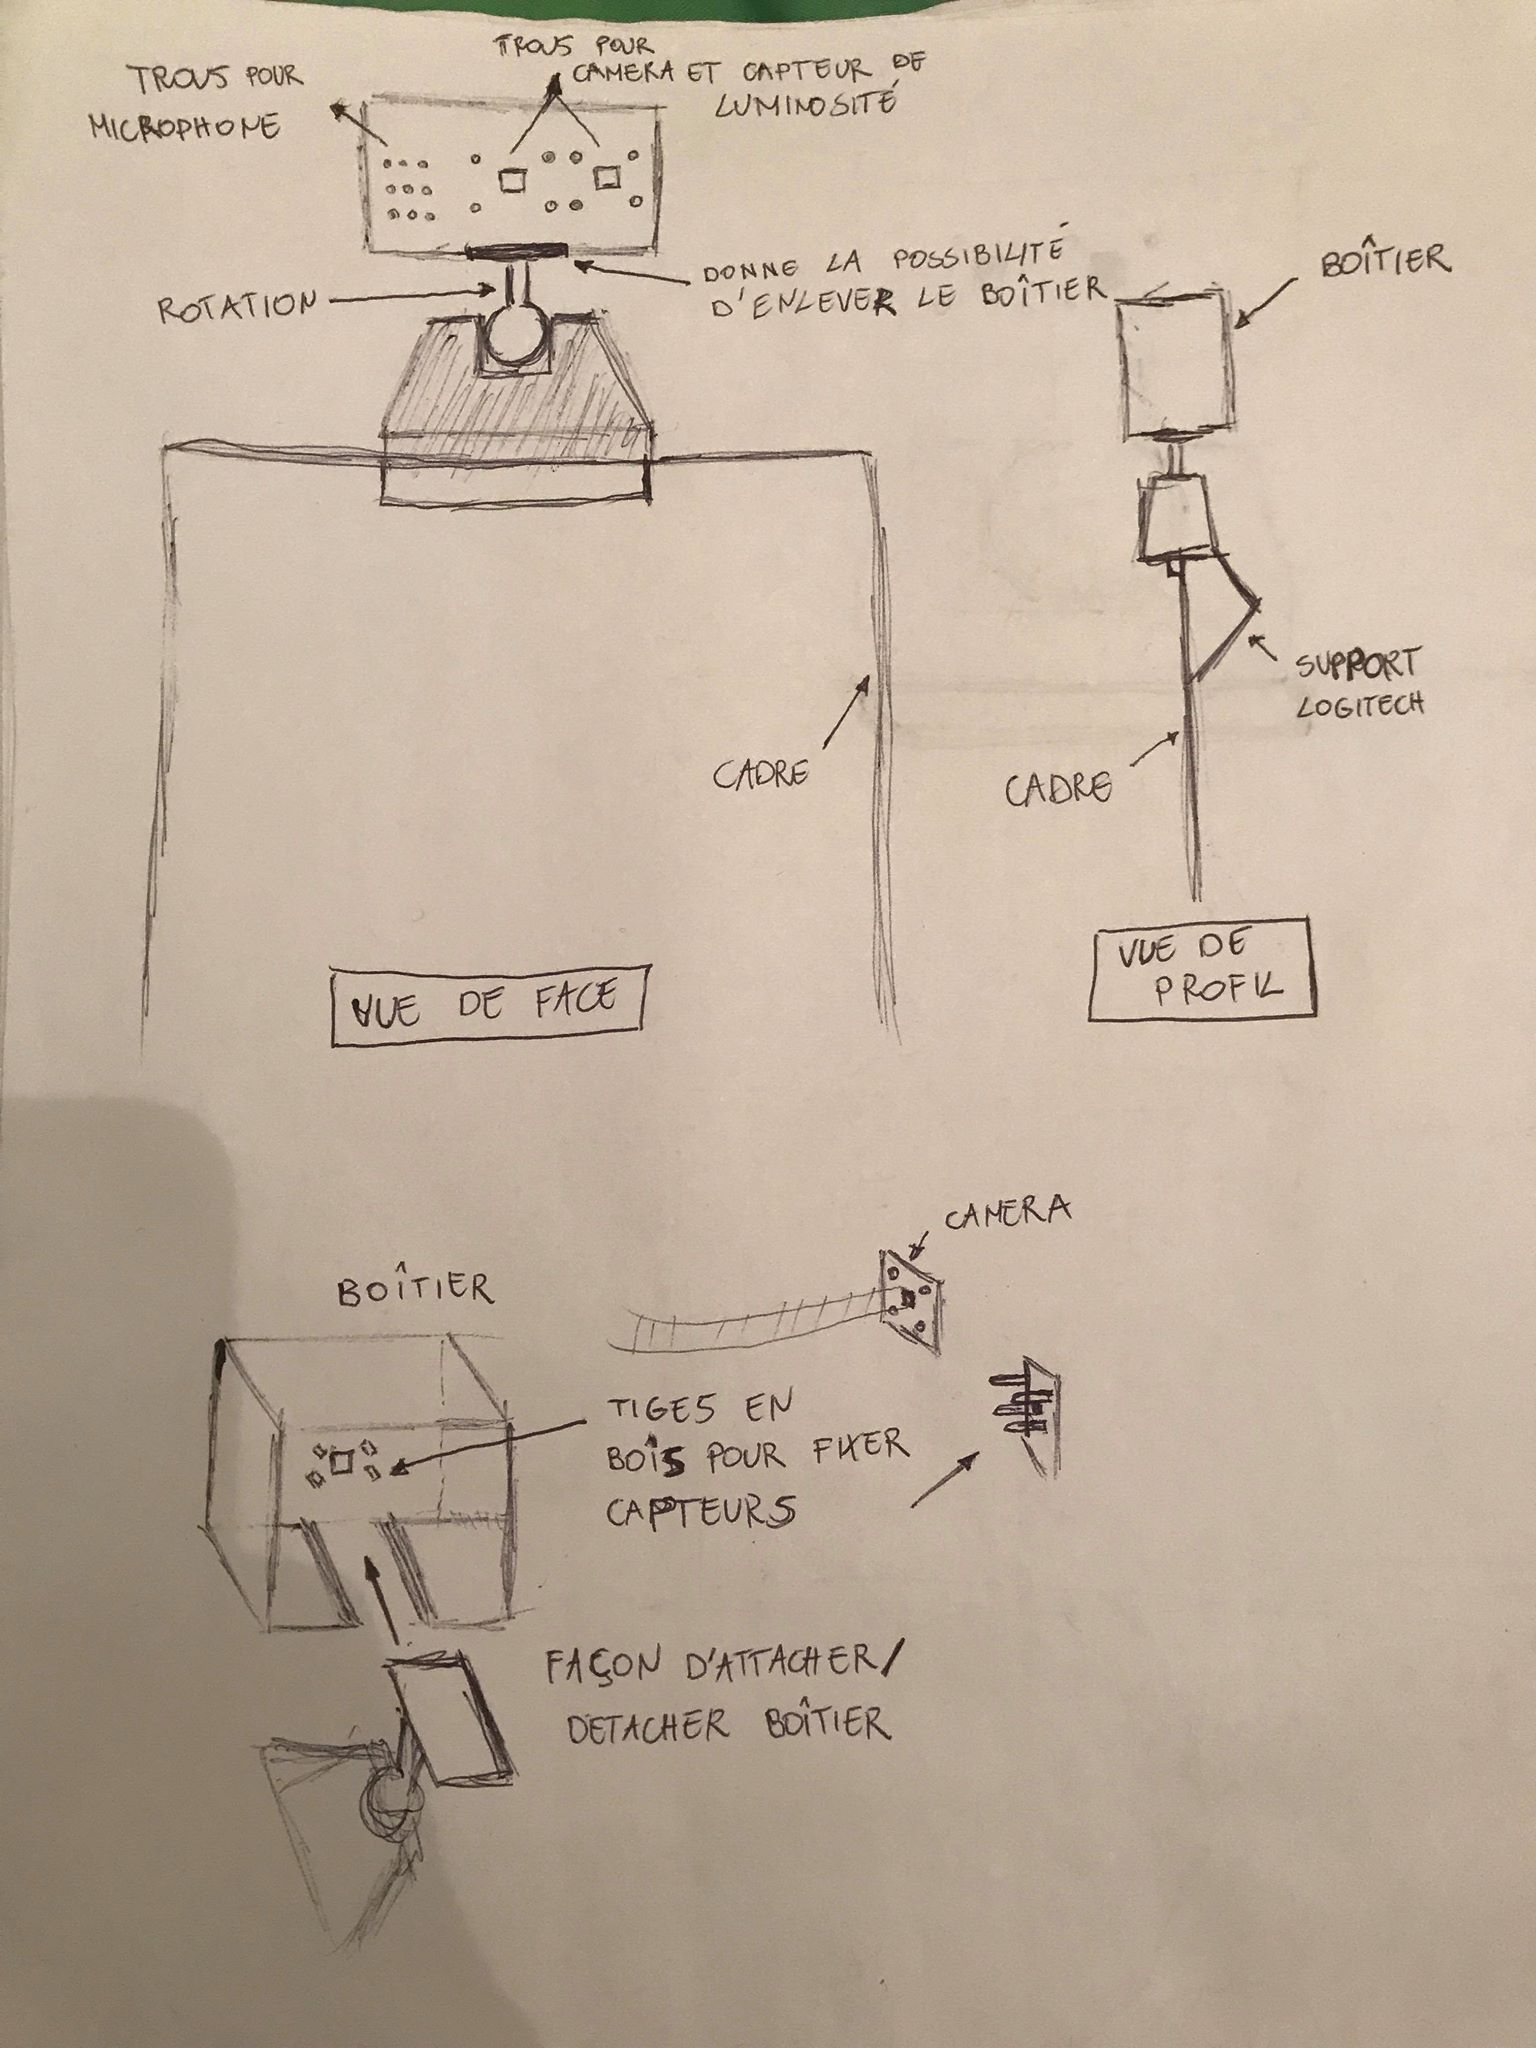 TROUS POUR
MICROPHONE
TROUS POUR
CAMERA ET CAPTEUR DE
LUMINOSITÉ
ROTATION
DONNE LA POSSIBILITÉ
D'ENLEVER LE BOÎTIER
BOÎTIER
SUPPORT
LOGITECH
CADRE
CADRE
VUE DE FACE
VUE DE
PROFIL
CAMERA
BOÎTIER
TIGES EN
BOIS POUR FIXER
CAPTEURS
FAÇON D'ATTACHER/
DETACHER BOÎTIER